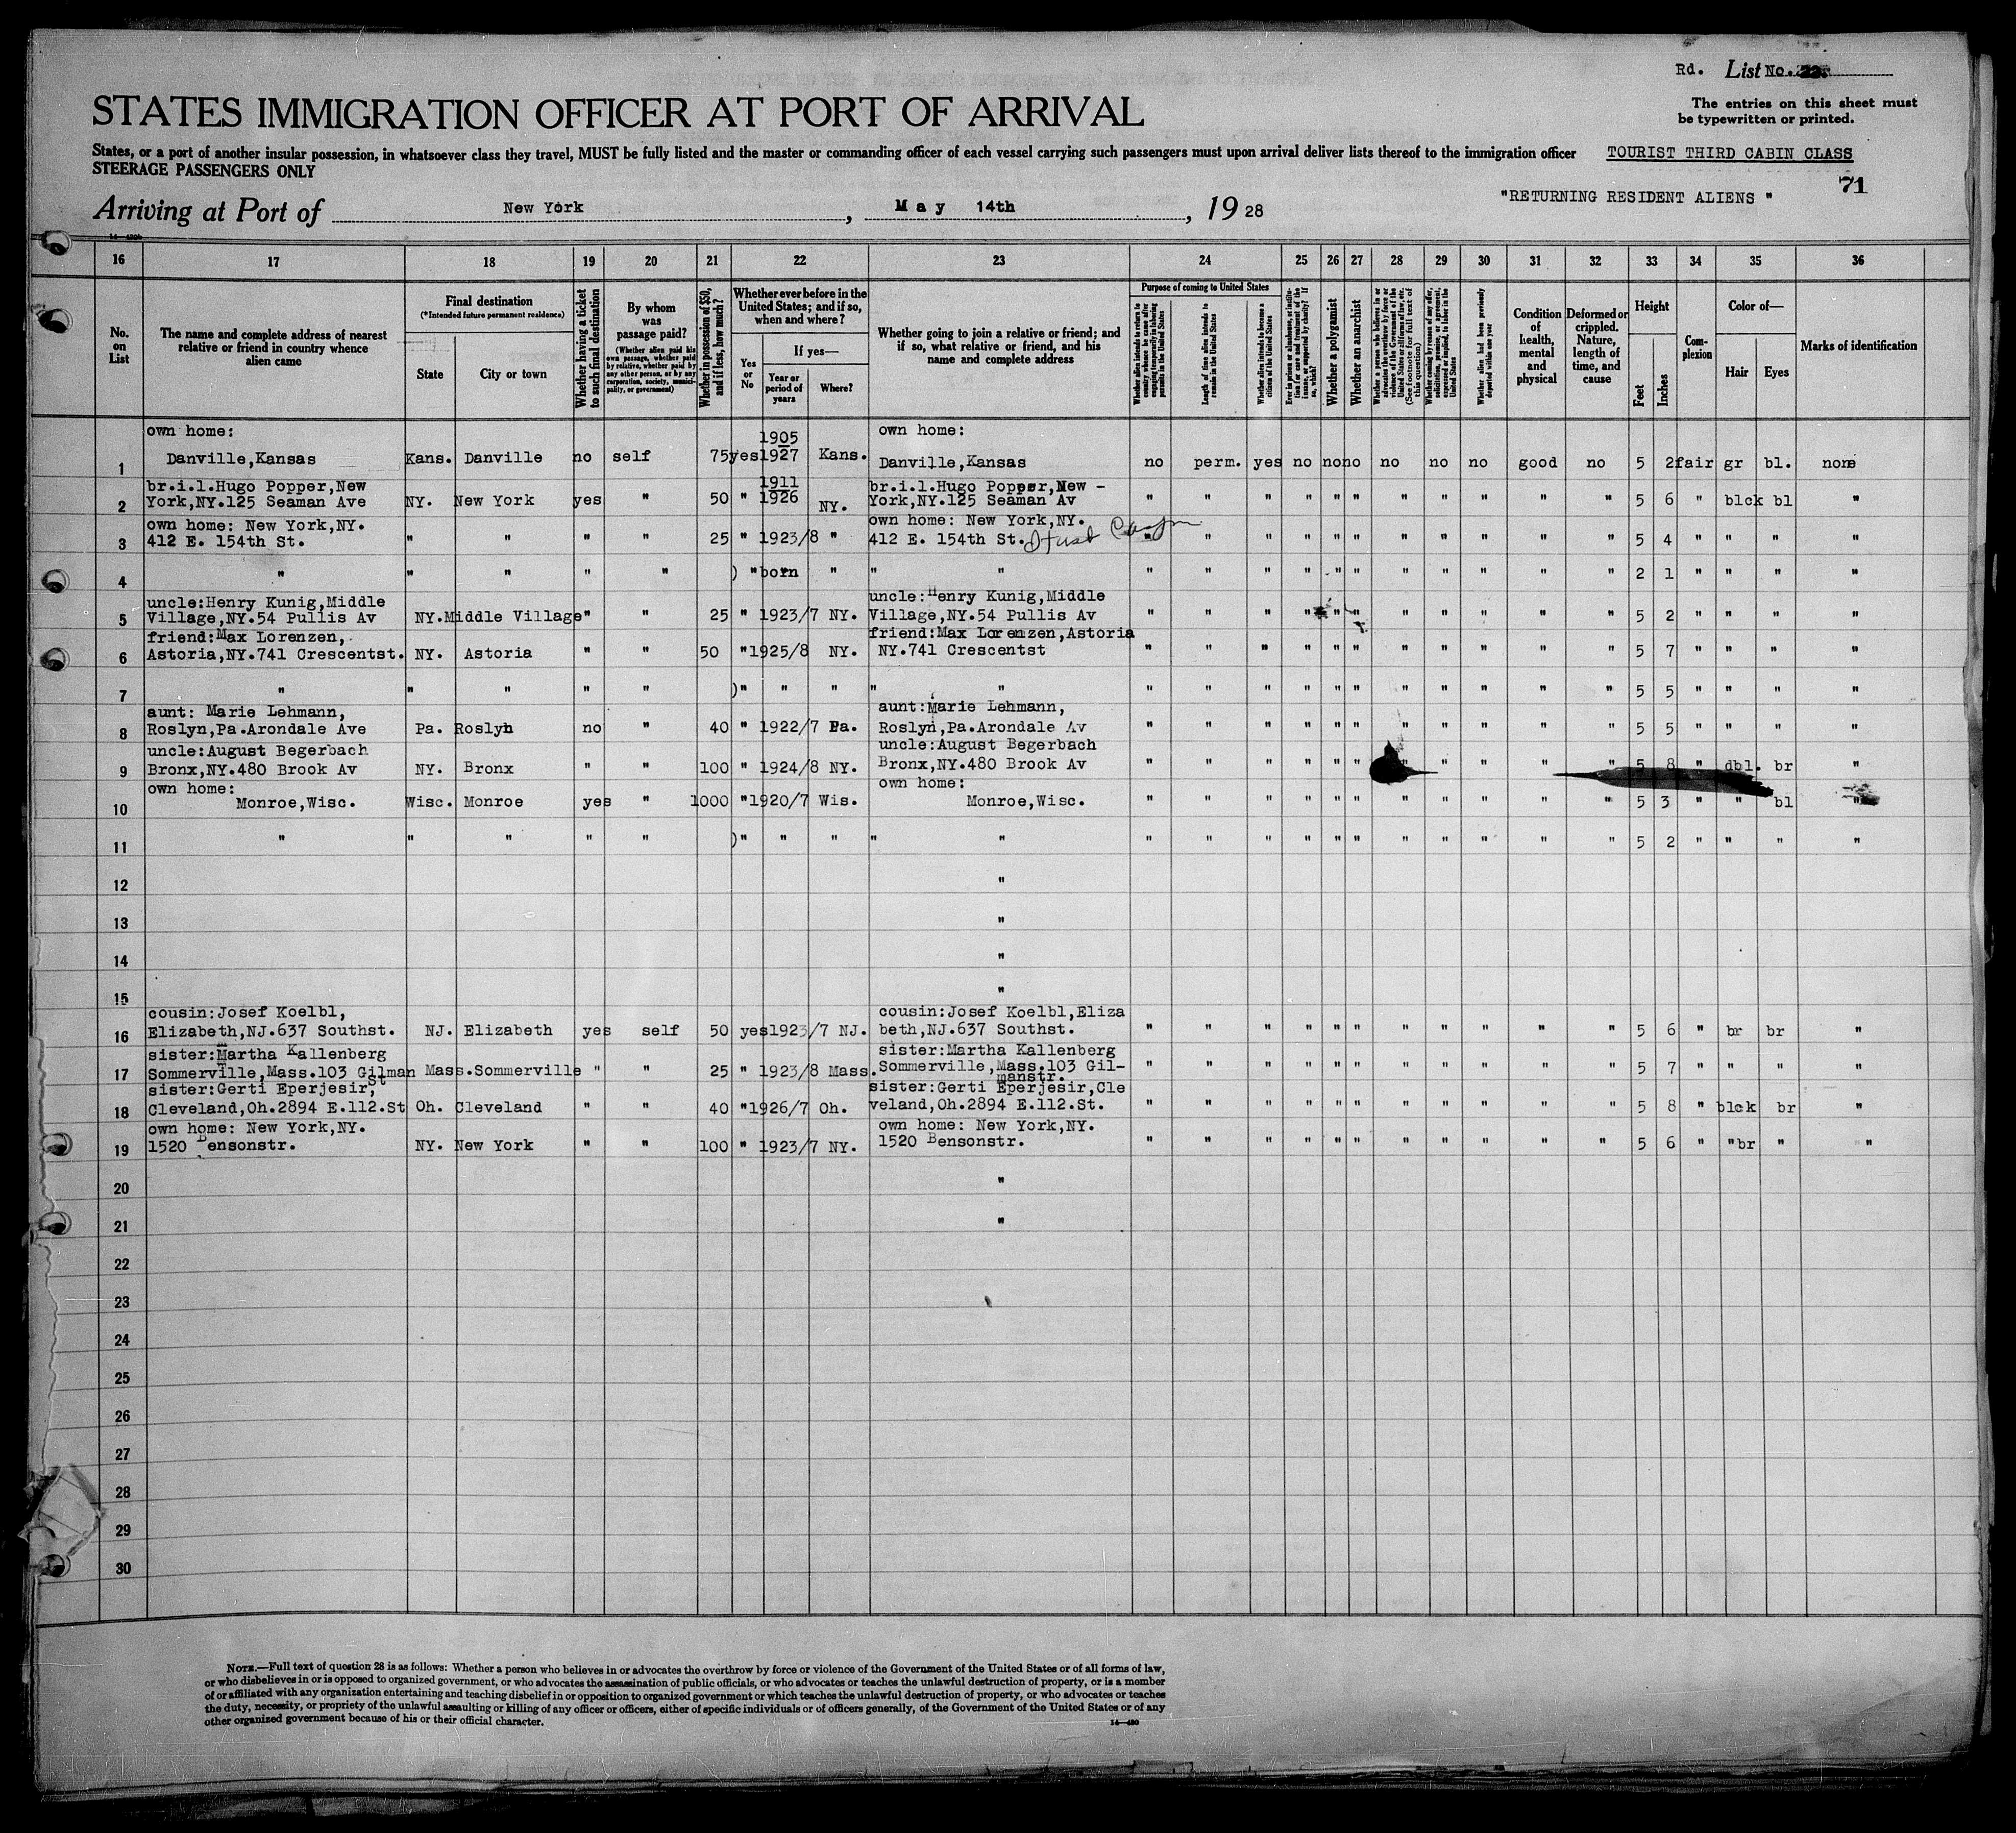 Rd. List No. 22.
STATES IMMIGRATION OFFICER AT PORT OF ARRIVAL
The entries on this sheet must
be typewritten or printed.
States, or a port of another insular possession, in whatsoever class they travel, MUST be fully listed and the master or commanding officer of each vessel carrying such passengers must upon arrival deliver lists thereof to the immigration officer
TOURIST THIRD CABIN CLASS
STEERAGE PASSENGERS ONLY
71
"RETURNING RESIDENT ALIENS "
Arriving at Port of New York, May 14th, 1928
16 17 18 19 20 21 22 23 24 25 26 27 28 29 30 31 32 33 34 35 36
No. on List
The name and complete address of nearest relative or friend in country whence alien came
Final destination
(*Intended future permanent residence)
State
City or town
Whether having a ticket to such final destination
By whom was passage paid?
(Whether alien paid his own passage, whether paid by relative, whether paid by any other person, or by any corporation, society, municipality, or government)
Whether in possession of $50, and if less, how much?
Whether ever before in the United States; and if so, when and where?
Yes or No
If yes—
Year or period of years
Where?
Whether going to join a relative or friend; and if so, what relative or friend, and his name and complete address
Purpose of coming to United States
Whether alien intends to return to country whence he came after engaging temporarily in laboring pursuits in the United States
Length of time alien intends to remain in the United States
Whether alien intends to become a citizen of the United States
Ever in prison or almshouse, or institution for care and treatment of the insane, or supported by charity? If so, which?
Whether a polygamist
Whether an anarchist
Whether a person who believes in or advocates the overthrow by force or violence of the Government of the United States or all forms of law, etc. (See footnote for full text of this question)
Whether coming by reason of any offer, solicitation, promise, or agreement, expressed or implied, to labor in the United States
Whether alien had been previously deported within one year
Condition of health, mental and physical
Deformed or crippled. Nature, length of time, and cause
Height
Feet
Inches
Complexion
Color of—
Hair
Eyes
Marks of identification
own home: 1905 own home:
1 Danville,Kansas Kans. Danville no self 75 yes 1927 Kans. Danville,Kansas no perm. yes no no no no no no good no 5 2 fair gr bl. none
br.i.l.Hugo Popper,New 1911 br.i.l.Hugo Popper,New -
2 York,NY.125 Seaman Ave NY. New York yes " 50 " 1926 NY. York,NY.125 Seaman Av " " " " " " " " " " " 5 6 " blck bl "
own home: New York,NY. own home: New York,NY.
3 412 E. 154th St. " " " " 25 " 1923/8 " 412 E. 154th St. " " " " " " " " " " " 5 4 " " " "
4 " " " " " ) " born " " " " " " " " " " " " " " " 2 1 " " " "
uncle:Henry Kunig,Middle uncle:Henry Kunig,Middle
5 Village,NY.54 Pullis Av NY. Middle Village " " 25 " 1923/7 NY. Village,NY.54 Pullis Av " " " " " " " " " " " 5 2 " " " "
friend:Max Lorenzen, friend:Max Lorenzen,Astoria
6 Astoria,NY.741 Crescentst. NY. Astoria " " 50 " 1925/8 NY. NY.741 Crescentst " " " " " " " " " " " 5 7 " " " "
7 " " " " " ) " " " " " " " " " " " " " " " " 5 5 " " " "
aunt: Marie Lehmann, aunt:Marie Lehmann,
8 Roslyn,Pa.Arondale Ave Pa. Roslyn no " 40 " 1922/7 Pa. Roslyn,Pa.Arondale Av " " " " " " " " " " " 5 5 " " " "
uncle:August Begerbach uncle:August Begerbach
9 Bronx,NY.480 Brook Av NY. Bronx " " 100 " 1924/8 NY. Bronx,NY.480 Brook Av " " " " " " " " " " " 5 8 " dbl. br "
own home: own home:
10 Monroe,Wisc. Wisc. Monroe yes " 1000 " 1920/7 Wis. Monroe,Wisc. " " " " " " " " " " " 5 3 " " bl "
11 " " " " " ) " " " " " " " " " " " " " " " " 5 2 " " " "
12 "
13 "
14 "
15 "
cousin:Josef Koelbl, cousin:Josef Koelbl,Eliza
16 Elizabeth,NJ.637 Southst. NJ. Elizabeth yes self 50 yes 1923/7 NJ. beth,NJ.637 Southst. " " " " " " " " " " " 5 6 " br br "
sister:Martha Kallenberg sister:Martha Kallenberg
17 Sommerville,Mass.103 Gilman St Mass. Sommerville " " 25 " 1923/8 Mass. Sommerville,Mass.103 Gil-manstr. " " " " " " " " " " " 5 7 " " " "
sister:Gerti Eperjesir, sister:Gerti Eperjesir,Cle
18 Cleveland,Oh.2894 E.112.St Oh. Cleveland " " 40 " 1926/7 Oh. veland,Oh.2894 E.112.St. " " " " " " " " " " " 5 8 " blck br "
own home: New York,NY. own home: New York,NY.
19 1520 Bensonstr. NY. New York " " 100 " 1923/7 NY. 1520 Bensonstr. " " " " " " " " " " " 5 6 " "br " "
20 "
21 "
22
23
24
25
26
27
28
29
30
NOTE.—Full text of question 28 is as follows: Whether a person who believes in or advocates the overthrow by force or violence of the Government of the United States or of all forms of law,
or who disbelieves in or is opposed to organized government, or who advocates the assassination of public officials, or who advocates or teaches the unlawful destruction of property, or is a member
of or affiliated with any organization entertaining and teaching disbelief in or opposition to organized government or which teaches the unlawful destruction of property, or who advocates or teaches
the duty, necessity, or propriety of the unlawful assaulting or killing of any officer or officers, either of specific individuals or of officers generally, of the Government of the United States or of any
other organized government because of his or their official character.
14—430